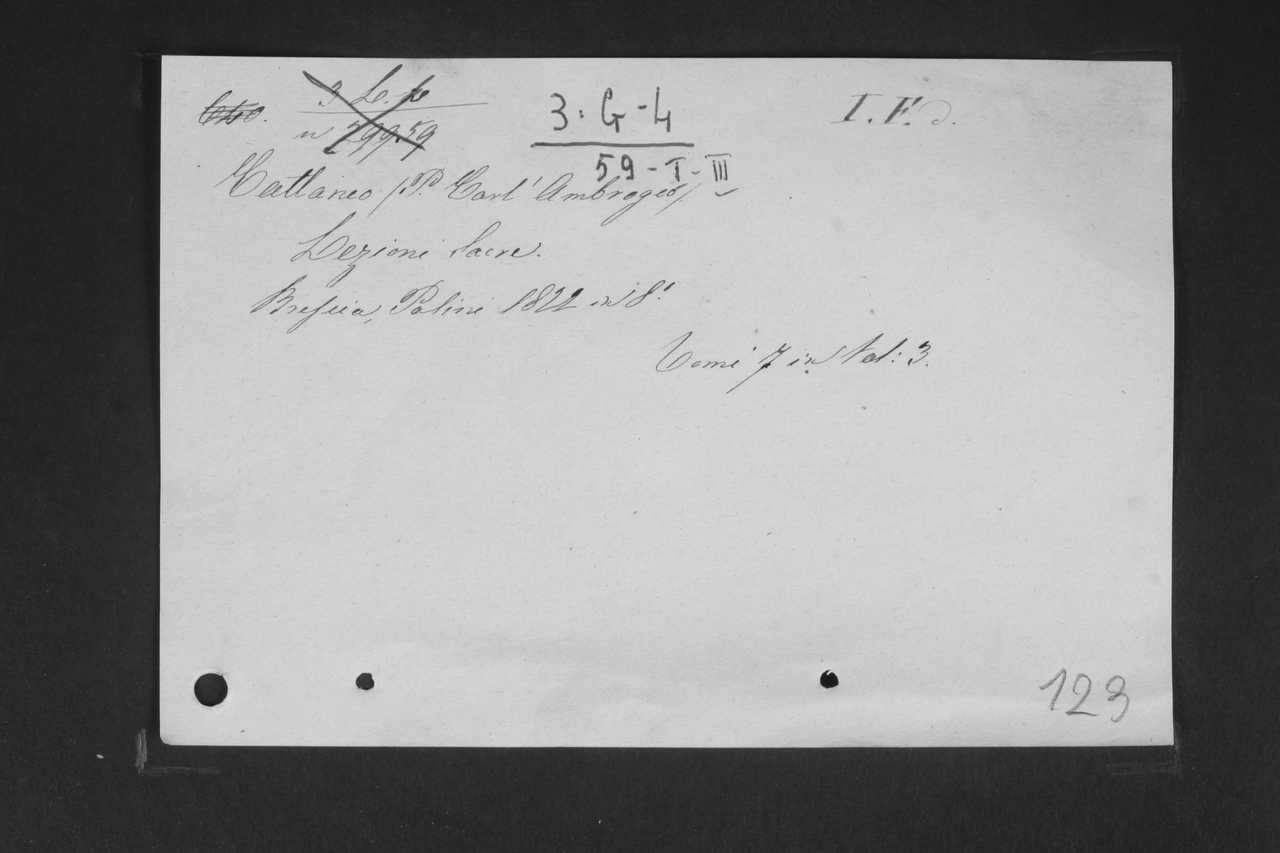 3 L. p
3 · G - 4
I. F. d.
n 79959
59 - I - III
Cattaneo (P. Carl' Ambrogio)
Lezioni Sacre.
Brescia, Polini 1822 in 8.°
Tomi 7 in Vol: 3.
123